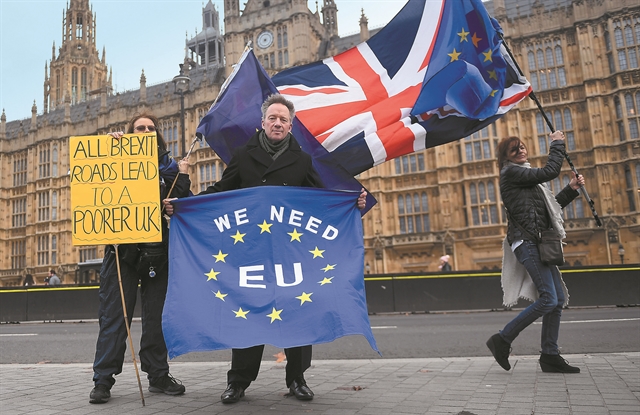 ALL BREXIT
ROADS LEAD
TO A
POORER UK
WE NEED
EU